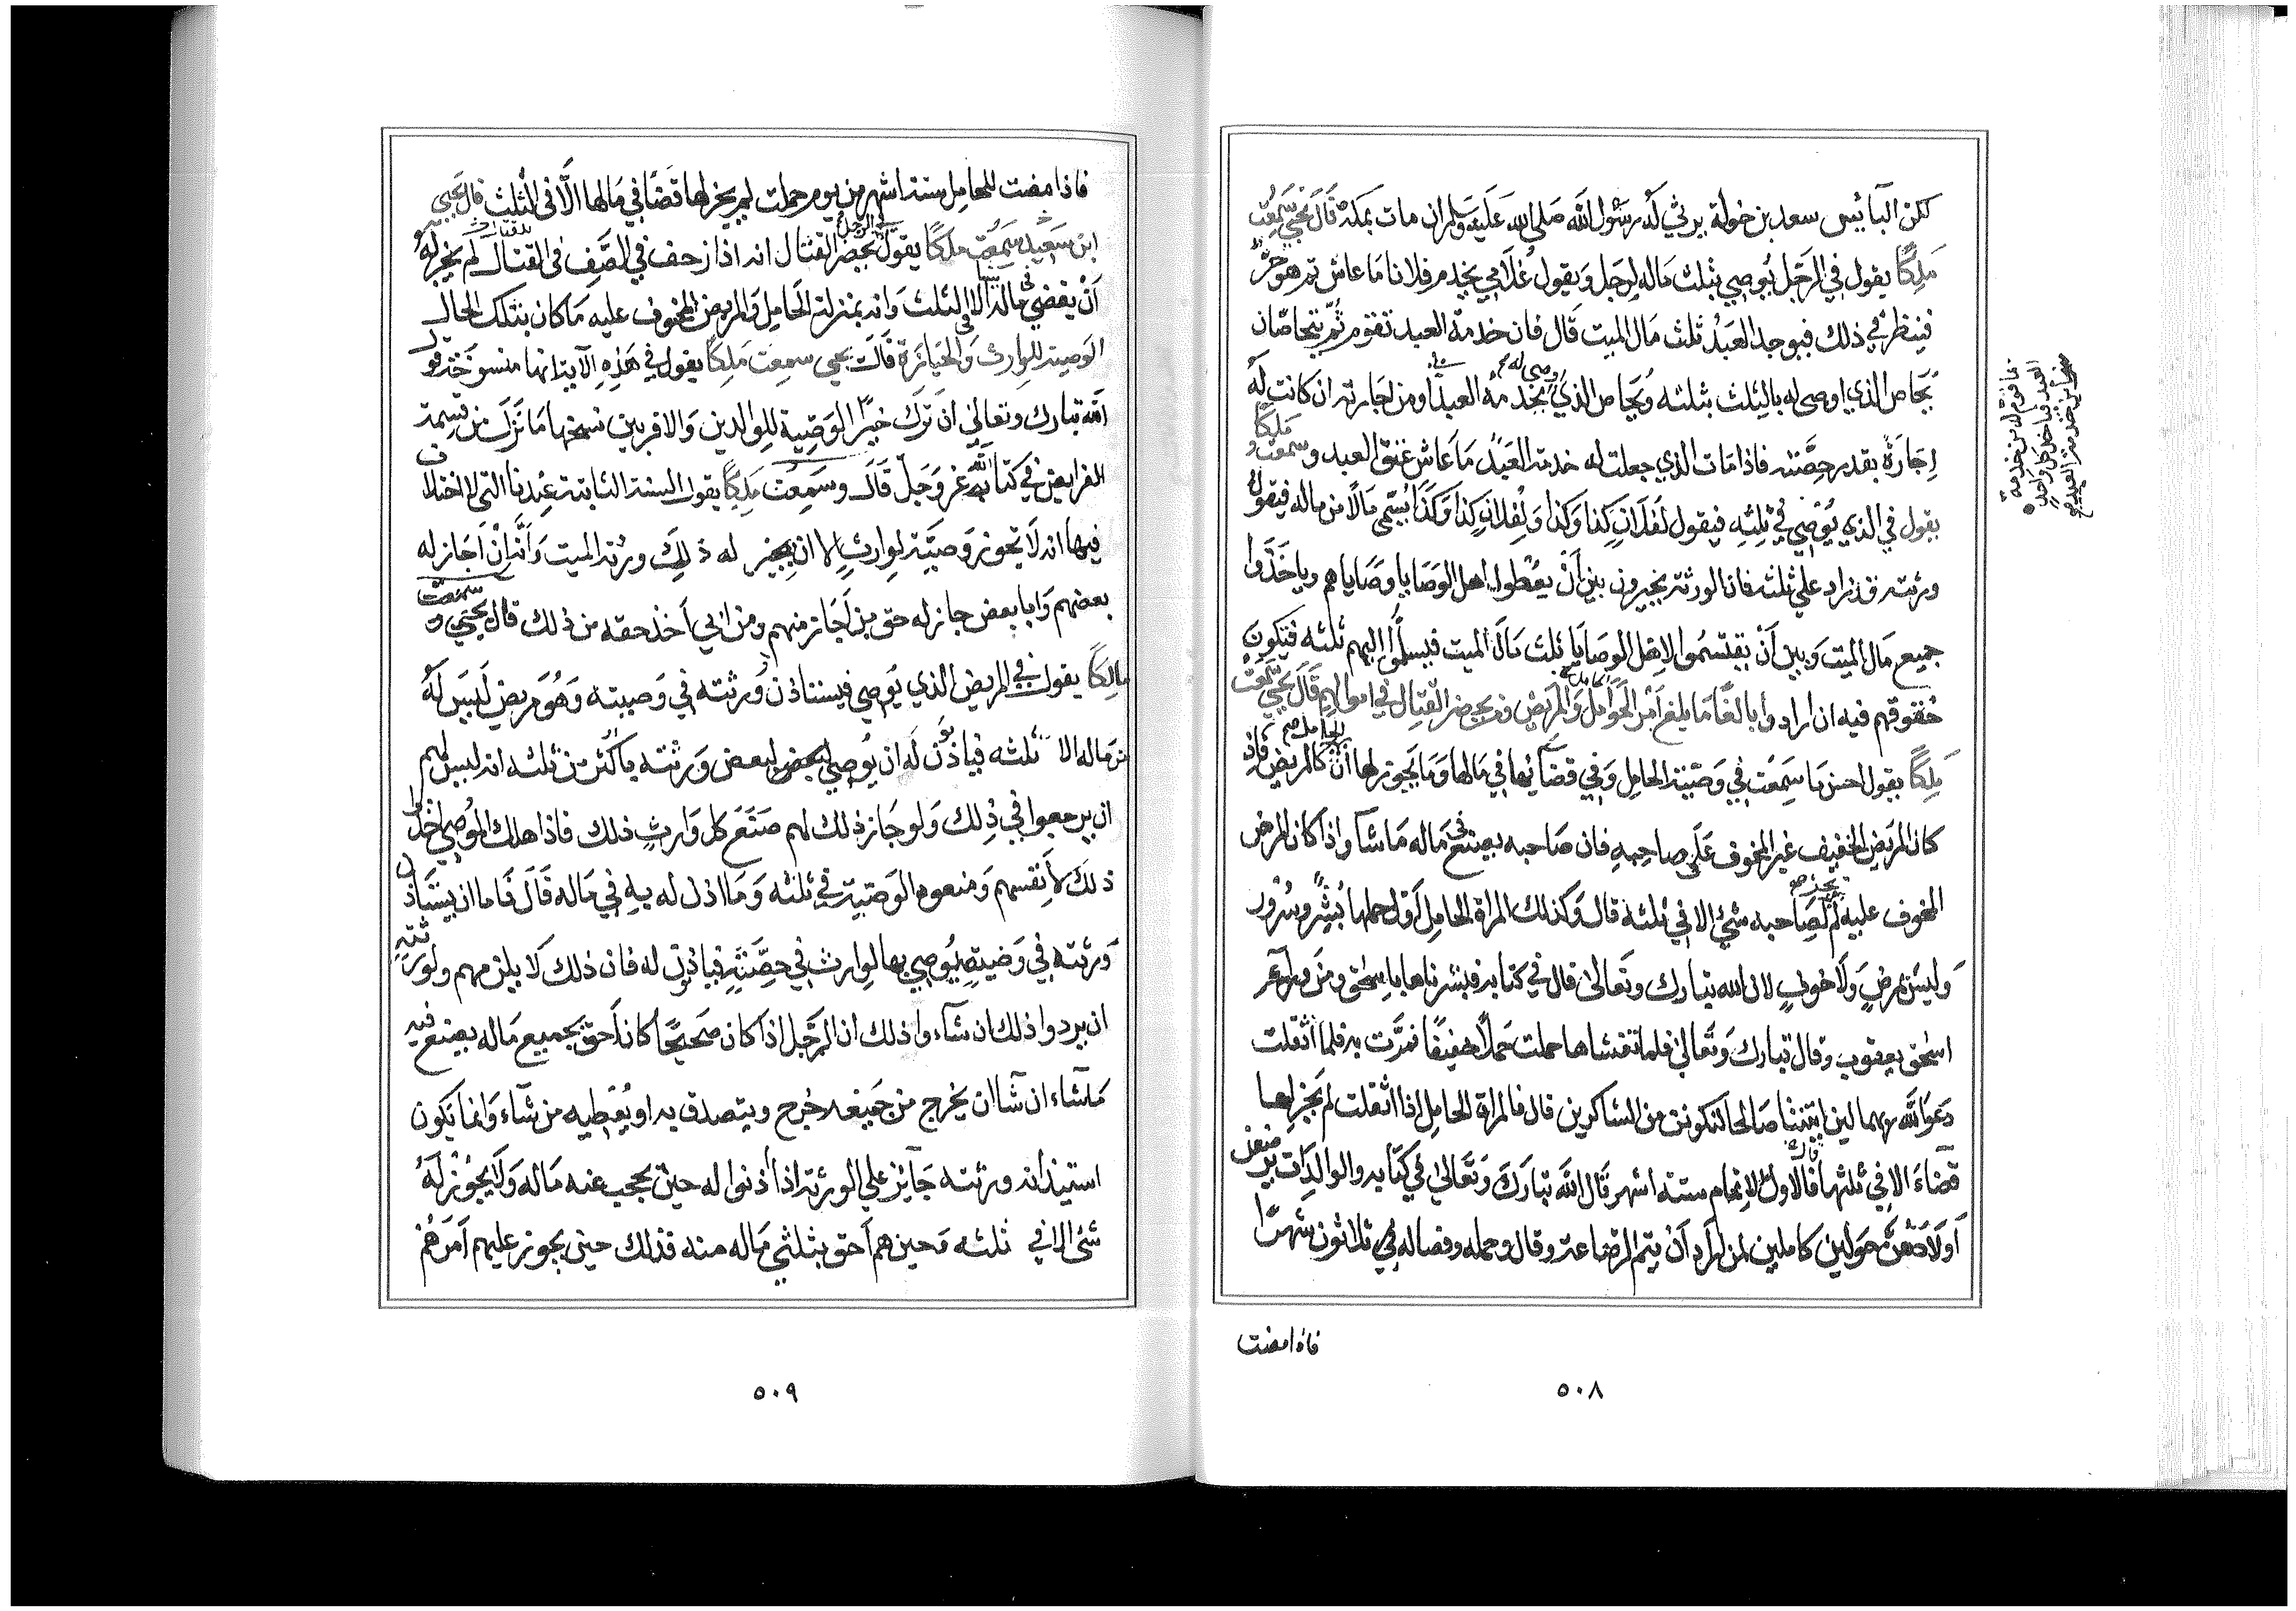 لكن البائس سعد بن خولة يرثي له رسول الله صلى الله عليه وسلم ان مات بمكة قال يحيى سمعت
ملكا يقول في الرجل يوصي بثلث ماله لرجل ويقول غلامي يخدم فلانا ما عاش ثم هو حر
فينظر في ذلك فيوجد العبد ثلث مال الميت قال فان خدمة العبد تقوم ثم يتحاصان
يحاص الذي اوصى له بالثلث بثلثه ويحاص الذي اوصى له بخدمة العبد ومن اجارته ان كانت له
اجارة بقدر حصته فاذا مات الذي جعلت له خدمة العبد ما عاش عتق العبد وسمعت ملكا
يقول في الذي يوصي في ثلثه فيقول لفلان كذا وكذا ولفلان كذا وكذا يسمي مالا من ماله فيقول
ورثته قد زاد على ثلثه فان الورثة يخيرون بين أن يعطوا اهل الوصايا وصاياهم وياخذوا
جميع مال الميت وبين أن يقتسموا لاهل الوصايا ثلث مال الميت فيسلموا اليهم ثلثه فتكون
حقوقهم فيه ان ارادوا بالغا ما بلغ أمر الحوامل والمريض ومن يحضر القتال في اموالهم قال يحيى سمعت
ملكا يقول احسن ما سمعت في وصية الحامل وفي قضائها في مالها وما يجوز لها أن الحامل كالمريض فاذا
كان المريض الخفيف غير المخوف على صاحبه فان صاحبه يصنع في ماله ما شآ واذا كان المرض
المخوف عليه لم يجز لصاحبه شئ الا في ثلثه قال وكذلك المراة الحامل أول حملها بشر وسرور
وليس بمرض ولا خوف لان الله تبارك وتعالى قال في كتابه فبشرناها باسحق ومن ورآء
اسحق يعقوب وقال تبارك وتعالى فلما تغشاها حملت حملا خفيفا فمرت به فلما أثقلت
دعوا الله ربهما لين اتيتنا صالحا لنكونن من الشاكرين قال فالمراة الحامل اذا اثقلت لم يجز لها
قضاء الا في ثلثها فالاول الاتمام ستة اشهر قال الله تبارك وتعالى في كتابه والوالدات يرضعن
أولادهن حولين كاملين لمن اراد أن يتم الرضاعة وقال وحمله وفصاله في ثلاثون شهرا
فاذا مضت
٥٠٨
فاذا مضت للحامل ستة اشهر من يوم حملت لم يجز لها قضا في مالها الا في الثلث قال يحيى
ابن سعيد سمعت ملكا يقول في الرجل يحضر القتال انه اذا زحف في الصف في القتال لم يجز له
أن يقضي في ماله شيا الا في الثلث وانه بمنزلة الحامل والمريض المخوف عليه ما كان بتلك الحال
الوصية للوارث والحيازة قال يحيى سمعت ملكا يقول في هذه الآية انها منسوخة قول
الله تبارك وتعالى ان ترك خيرا الوصية للوالدين والاقربين نسخها ما نزل من قسمة
الفرايض في كتاب الله عز وجل قال وسمعت ملكا يقول السنة الثابتة عندنا التي لا اختلاف
فيها انه لا تجوز وصية لوارث الا ان يجيز له ذلك ورثة الميت وأنه إن أجاز له
بعضهم وابا بعض جاز له حق من أجاز منهم ومن ابي أخذ حقه من ذلك قال يحيى وسمعت
مالكا يقول في المريض الذي يوصي فيستاذن ورثته في وصيته وهو مريض ليس له
من ماله الا ثلثه فياذنون له ان يوصي لبعض ورثته باكثر من ثلثه انه ليس لهم
ان يرجعوا في ذلك ولو جاز ذلك لهم صنع كل وارث ذلك فاذا هلك الموصي اخذوا
ذلك لانفسهم ومنعوه الوصية في ثلثه وما اذن له به في ماله قال فاما ان يستاذن
ورثته في وصية يوصي بها لوارث في صحته فياذنون له فان ذلك لا يلزمهم ولورثته
ان يردوا ذلك ان شاء وا ذلك ان الرجل اذا كان صحيحا كان أحق بجميع ماله يصنع فيه
ما شاء ان شآ ان يخرج من جميعه خرج ويتصدق به او يعطيه من شاء وانما يكون
استيذانه ورثته جائز علي الورثة اذا أذنوا له حين يحجب عنه ماله ولا يجوز له
شئ الا في ثلثه وحين هم أحق بثلثي ماله منه فذلك حين يجوز عليهم أمرهم
٥٠٩